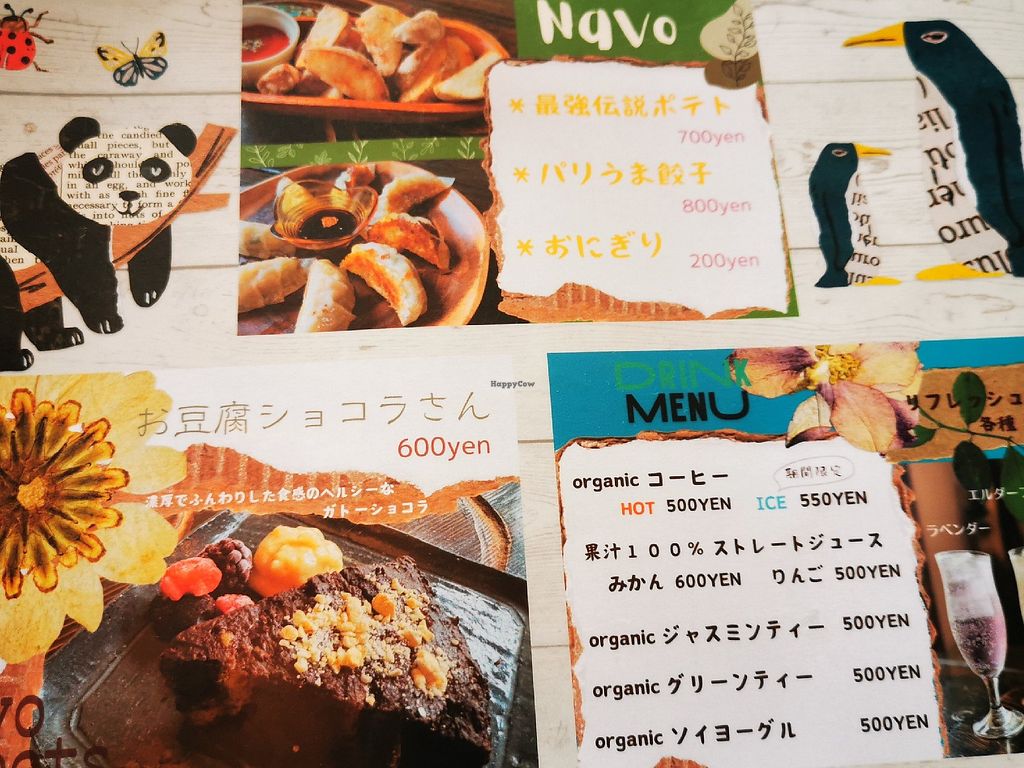 Navo
*最強伝説ポテト
700yen
*パリうま餃子
800yen
*おにぎり
200yen
HappyCow
お豆腐ショコラさん
600yen
濃厚でふんわりした食感のヘルシーな
ガトーショコラ
DRINK
MENU
organic コーヒー
期間限定
HOT 500YEN ICE 550YEN
果汁１００％ストレートジュース
みかん 600YEN りんご 500YEN
organic ジャスミンティー 500YEN
organic グリーンティー 500YEN
organic ソイヨーグル 500YEN
リフレッシュ
各種
エルダー
ラベンダー
the candied
small pieces, but
the caraway and
in an egg, and work
necessary to form a